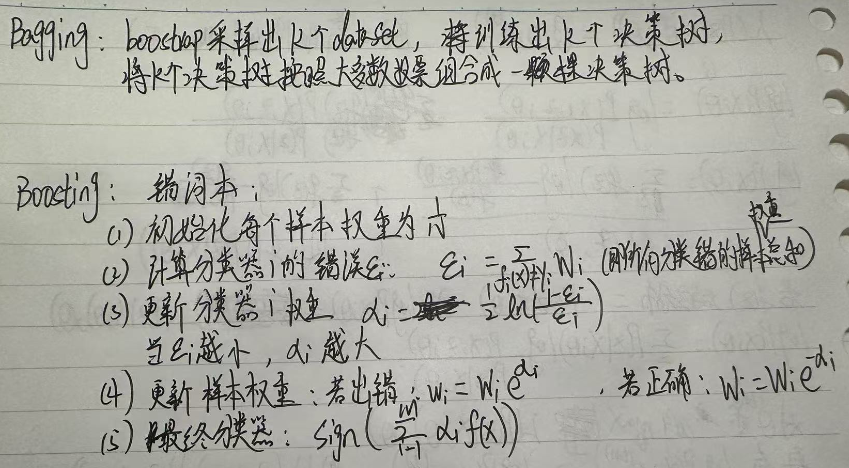 Bagging: bootstrap采样出k个dataset, 将训练出k个决策树,
将k个决策树按照大多数投票组合成一颗棵决策树。
Boosting: 错词本:
(1) 初始化每个样本权重为 1/N
(2) 计算分类器i的错误εi: εi = Σ_{fi(x)≠yi} Wi (即所有分类错的样本权重总和)
(3) 更新分类器i权重 αi = 1/2 ln((1-εi)/εi)
当εi越小, αi越大
(4) 更新样本权重: 若出错: Wi = Wi e^{αi} , 若正确: Wi = Wi e^{-αi}
(5) 最终分类器: sign( Σ_{i=1} αi f(x))